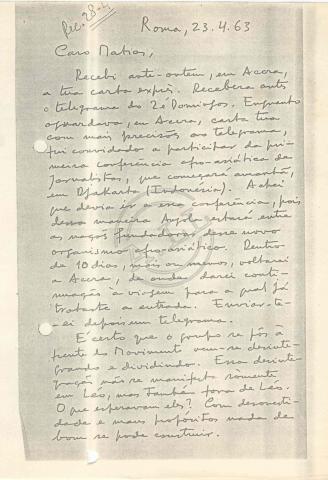 Rec. 28-4
Roma, 23.4.63
Caro Matias,
Recebi ante-ontem, em Accra,
a tua carta expres. Recebera antes
o telegrama do Zé Domingos. Enquanto
aguardava, em Accra, carta tua
com mais precisões ao telegrama,
fui convidado a participar da pri-
meira conferência afro-asiática de
Jornalistas, que começará amanhã,
em Djakarta (Indonesia). Achei
que devia ir a essa conferência, pois
dessa maneira Angola estará entre
as nações fundadoras desse novo
organismo afro-asiático. Dentro
de 10 dias, mais ou menos, voltarei
a Accra, de onde darei conti-
nuação à viagem para a qual já
trataste a entrada. Enviar-te-
ei depois um telegrama.
É certo que o grupo se pôs à
frente do Moviment vem-se desinte-
grando e dividindo. Essa desinte-
gração não se manifesta somente
em Leo, mas também fora de Leo.
O que esperavam eles? Com desonesti-
dade e maus propósitos nada de
bom se pode construir.